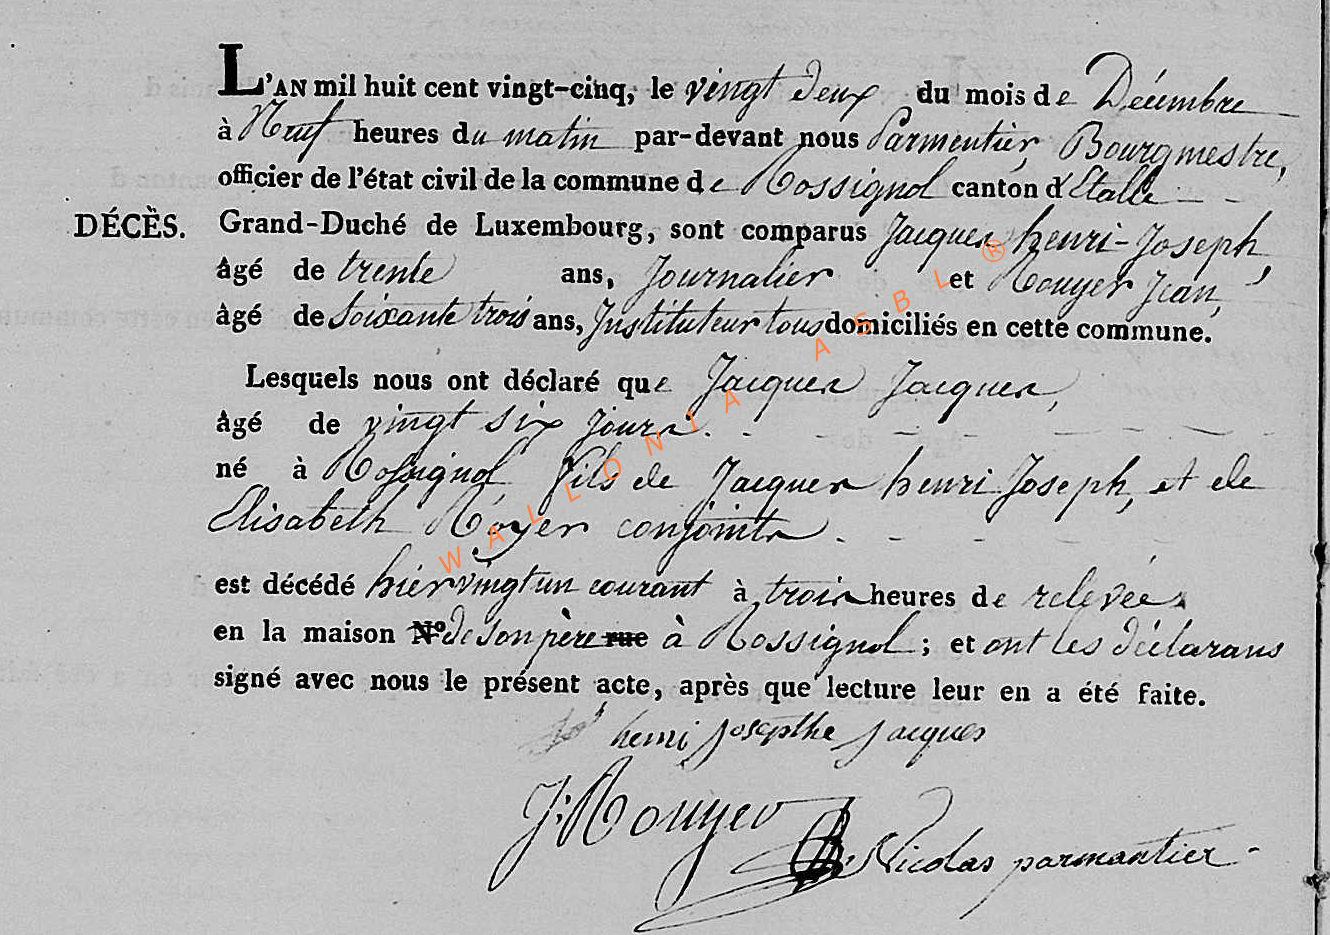 L'AN mil huit cent vingt-cinq, le vingt deux du mois de Décembre
à Neuf heures du matin par-devant nous Parmentier, Bourgmestre,
officier de l'état civil de la commune de Rossignol canton d'Etalle
DÉCÈS. Grand-Duché de Luxembourg, sont comparus Jacques henri-Joseph,
âgé de trente ans, Journalier et Rouyer Jean,
âgé de Soixante trois ans, Instituteur tous domiciliés en cette commune.
Lesquels nous ont déclaré que Jacques Jacques,
âgé de vingt six jours.
né à Rossignol fils de Jacques henri Joseph, et de
Elisabeth Royer conjoints
est décédé hier vingt un courant à trois heures de relevée
en la maison N° de son père rue à Rossignol ; et ont les déclarans
signé avec nous le présent acte, après que lecture leur en a été faite.
henri josepthe jacques
J: Rouyer
Nicolas parmantier
WALLONIA ASBL ®